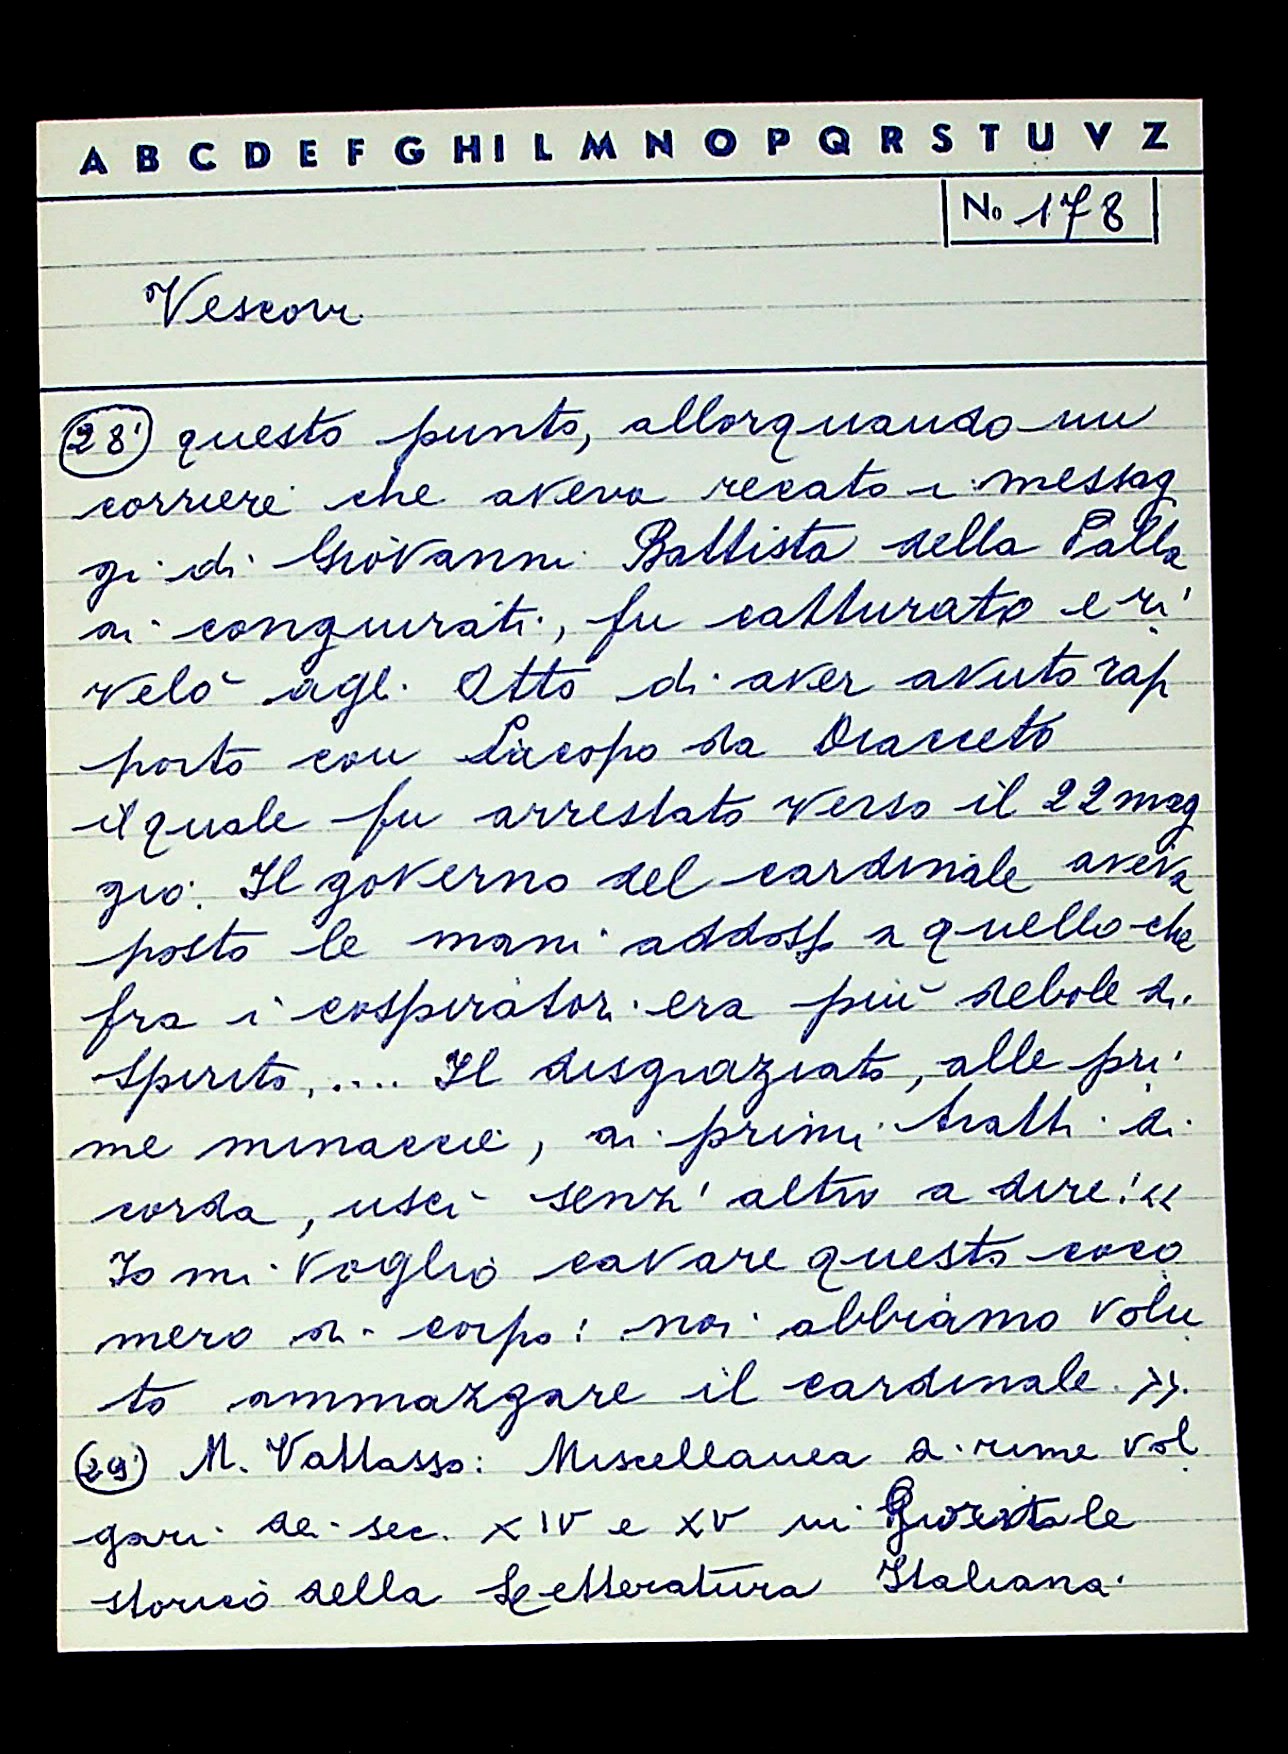 A B C D E F G H I L M N O P Q R S T U V Z
No 178
Vescovi
(28) questo punto, allorquando un
corriere che aveva recato i messag
gi di Giovanni Battista della Palla
ai congiurati, fu catturato e ri
velò agli Otto di aver avuto rap
porto con Iacopo da Diacceto
il quale fu arrestato verso il 22 mag
gio. Il governo del cardinale aveva
posto le mani addosso a quello che
fra i cospiratori era più debole di
spirito, .... Il disgraziato, alle pri
me minaccie, ai primi tratti di
corda, uscì senz'altro a dire: «
Io mi voglio cavare questo coco
mero di corpo: noi abbiamo volu
to ammazzare il cardinale. ».
(29) M. Vattasso: Miscellanea di rime vol
gari dei sec. XIV e XV in Giornale
storico della Letteratura Italiana.